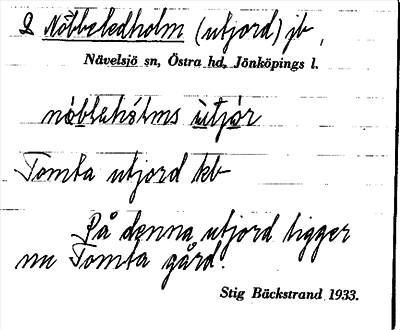 2 Nöbbeledholm (utjord) jb,
Nävelsjö sn, Östra hd, Jönköpings l.
nöbləhólms ùtjór
Tomta utjord kb
På denna utjord ligger
nu Tomta gård.
Stig Bäckstrand 1933.